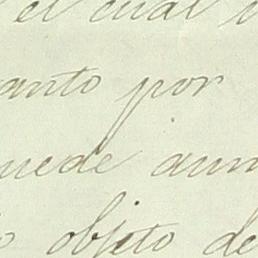 el cual
anto por
uede aun
o objeto de